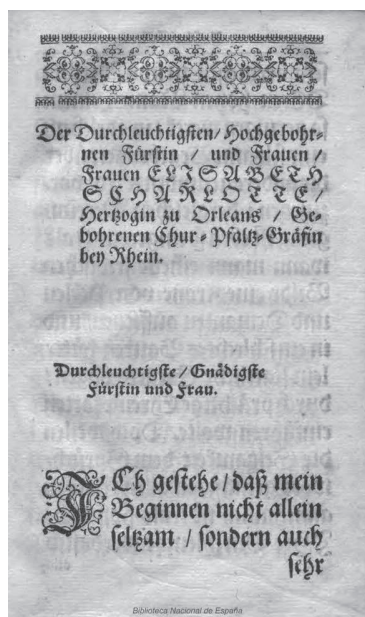 Der Durchleuchtigsten/ Hochgebohr-
nen Fürstin / und Frauen /
Frauen ELISABETH
SCHARLOTTE/
Hertzogin zu Orleans / Ge-
bohrenen Chur-Pfaltz-Gräfin
bey Rhein.
Durchleuchtigste / Gnädigste
Fürstin und Frau.
ICh gestehe / daß mein
Beginnen nicht allein
seltzam / sondern auch
sehr
Biblioteca Nacional de España